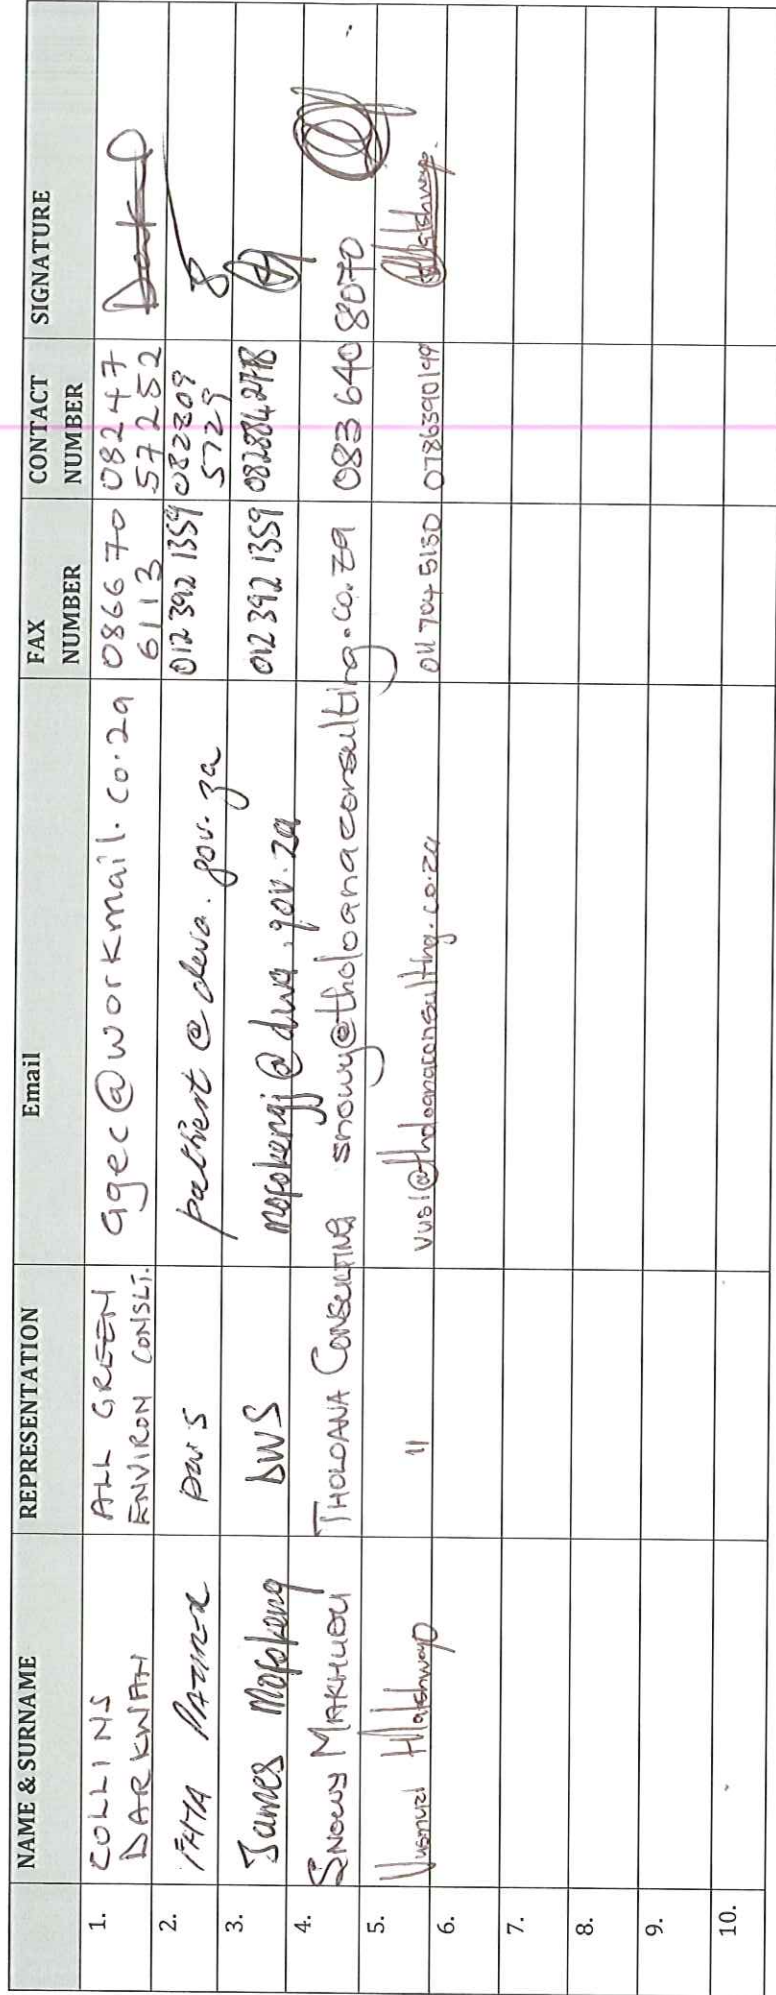 NAME & SURNAME REPRESENTATION Email FAX NUMBER CONTACT NUMBER SIGNATURE
1. COLLINS DARKWAH ALL GREEN ENVIRON CONSLT. agec@workmail.co.za 0866 70 6113 08247 57252
2. DWS 012 392 1359 082809 5729
3. James Mofokeng DWS mofokengj@dwa.gov.za 012 392 1359
4. SNOWY MAKHUDU THOLOANA CONSULTING snowy@tholoanaconsulting.co.za 083 640 8070
5. Vusmuzi Hlatshwayo 11 vusi@tholoanaconsulting.co.za 011 704 5130 0786390149
6.
7.
8.
9.
10.